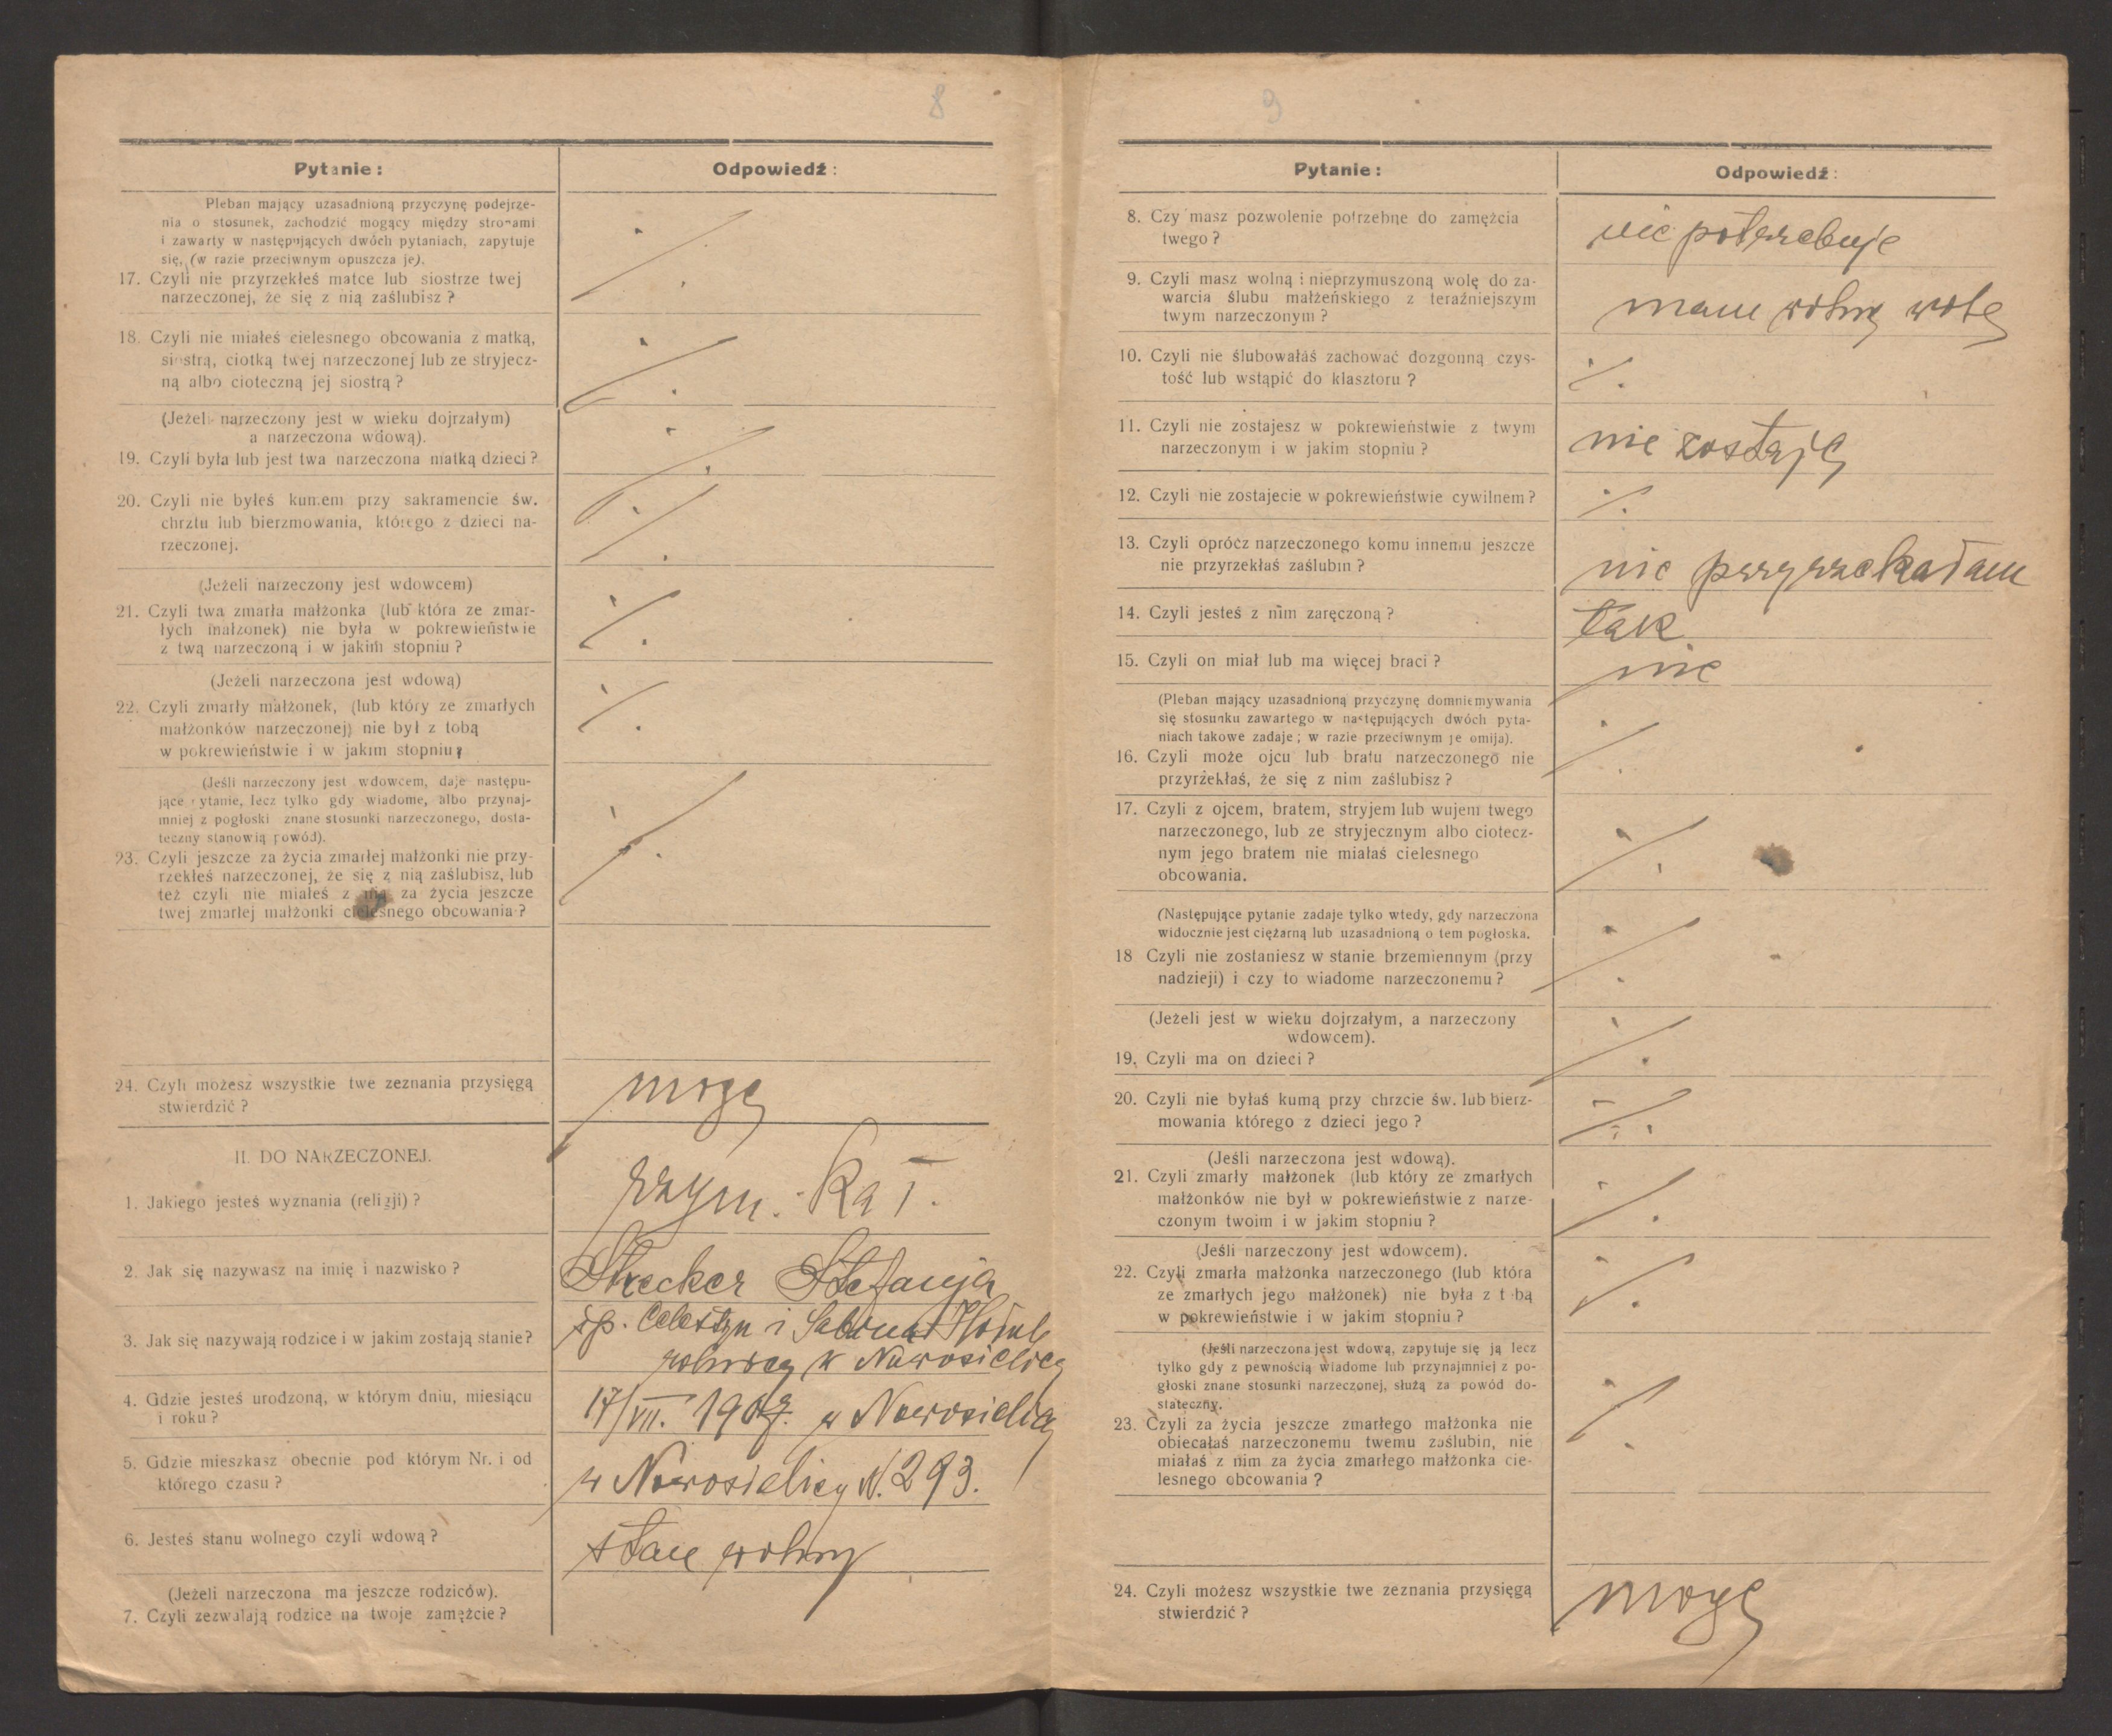 8
Pytanie:
Odpowiedź:
Pleban mający uzasadnioną przyczynę podejrze-
nia o stosunek, zachodzić mogący między stronami
i zawarty w następujących dwóch pytaniach, zapytuje
się, (w razie przeciwnym opuszcza je).
17. Czyli nie przyrzekłeś matce lub siostrze twej
narzeczonej, że się z nią zaślubisz?
18. Czyli nie miałeś cielesnego obcowania z matką,
siostrą, ciotką twej narzeczonej lub ze stryjecz-
ną albo cioteczną jej siostrą?
(Jeżeli narzeczony jest w wieku dojrzałym)
a narzeczona wdową).
19. Czyli była lub jest twa narzeczona matką dzieci?
20. Czyli nie byłeś kumem przy sakramencie św.
chrztu lub bierzmowania, którego z dzieci na-
rzeczonej.
(Jeżeli narzeczony jest wdowcem)
21. Czyli twa zmarła małżonka (lub która ze zmar-
łych małżonek) nie była w pokrewieństwie
z twą narzeczoną i w jakim stopniu?
(Jeżeli narzeczona jest wdową)
22. Czyli zmarły małżonek, (lub który ze zmarłych
małżonków narzeczonej) nie był z tobą
w pokrewieństwie i w jakim stopniu?
(Jeśli narzeczony jest wdowcem, daje następu-
jące pytanie, lecz tylko gdy wiadome, albo przynaj-
mniej z pogłoski znane stosunki narzeczonego, dosta-
teczny stanowią powód).
23. Czyli jeszcze za życia zmarłej małżonki nie przy-
rzekłeś narzeczonej, że się z nią zaślubisz, lub
też czyli nie miałeś z nią za życia jeszcze
twej zmarłej małżonki cielesnego obcowania?
24. Czyli możesz wszystkie twe zeznania przysięgą
stwierdzić?
mogę
II. DO NARZECZONEJ.
1. Jakiego jesteś wyznania (religji)?
rzym. kat.
2. Jak się nazywasz na imię i nazwisko?
Strecker Stefanja
3. Jak się nazywają rodzice i w jakim zostają stanie?
śp. Celestyn i Sabina
rolnicy w Nowosielicy
4. Gdzie jesteś urodzoną, w którym dniu, miesiącu
i roku?
17/VII. w Nowosielicy
5. Gdzie mieszkasz obecnie pod którym Nr. i od
którego czasu?
w Nowosielicy N. 293.
6. Jesteś stanu wolnego czyli wdową?
stan wolny
(Jeżeli narzeczona ma jeszcze rodziców).
7. Czyli zezwalają rodzice na twoje zamężcie?
9
Pytanie:
Odpowiedź:
8. Czy masz pozwolenie potrzebne do zamężcia
twego?
nie potrzebuje
9. Czyli masz wolną i nieprzymuszoną wolę do za-
warcia ślubu małżeńskiego z teraźniejszym
twym narzeczonym?
mam wolną wolę
10. Czyli nie ślubowałaś zachować dozgonną czys-
tość lub wstąpić do klasztoru?
11. Czyli nie zostajesz w pokrewieństwie z twym
narzeczonym i w jakim stopniu?
nie zostaję
12. Czyli nie zostajecie w pokrewieństwie cywilnem?
13. Czyli oprócz narzeczonego komu innemu jeszcze
nie przyrzekłaś zaślubin?
nie przyrzekałam
14. Czyli jesteś z nim zaręczoną?
tak
15. Czyli on miał lub ma więcej braci?
nie
(Pleban mający uzasadnioną przyczynę domniemywania
się stosunku zawartego w następujących dwóch pyta-
niach takowe zadaje; w razie przeciwnym je omija).
16. Czyli może ojcu lub bratu narzeczonego nie
przyrzekłaś, że się z nim zaślubisz?
17. Czyli z ojcem, bratem, stryjem lub wujem twego
narzeczonego, lub ze stryjecznym albo ciotecz-
nym jego bratem nie miałaś cielesnego
obcowania.
(Następujące pytanie zadaje tylko wtedy, gdy narzeczona
widocznie jest ciężarną lub uzasadnioną o tem pogłoska.
18 Czyli nie zostaniesz w stanie brzemiennym (przy
nadzieji) i czy to wiadome narzeczonemu?
(Jeżeli jest w wieku dojrzałym, a narzeczony
wdowcem).
19. Czyli ma on dzieci?
20. Czyli nie byłaś kumą przy chrzcie św. lub bierz-
mowania którego z dzieci jego?
(Jeśli narzeczona jest wdową).
21. Czyli zmarły małżonek (lub który ze zmarłych
małżonków nie był w pokrewieństwie z narze-
czonym twoim i w jakim stopniu?
(Jeśli narzeczony jest wdowcem).
22. Czyli zmarła małżonka narzeczonego (lub która
ze zmarłych jego małżonek) nie była z tobą
w pokrewieństwie i w jakim stopniu?
(Jeśli narzeczona jest wdową, zapytuje się ją lecz
tylko gdy z pewnością wiadome lub przynajmniej z po-
głoski znane stosunki narzeczonej, służą za powód do-
stateczny.
23. Czyli za życia jeszcze zmarłego małżonka nie
obiecałaś narzeczonemu twemu zaślubin, nie
miałaś z nim za życia zmarłego małżonka cie-
lesnego obcowania?
24. Czyli możesz wszystkie twe zeznania przysięgą
stwierdzić?
mogę